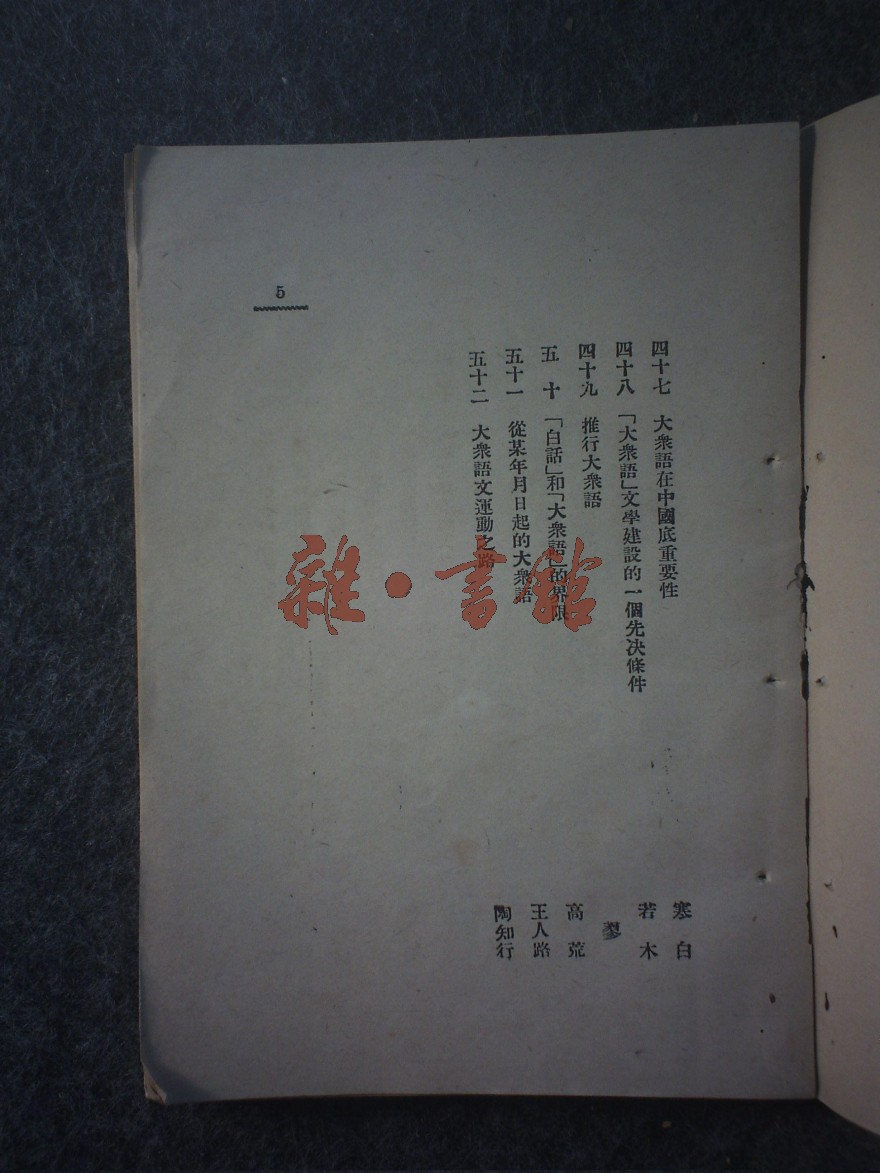 四十七　大衆語在中國底重要性　寒白
四十八　「大衆語」文學建設的一個先决條件　若木
四十九　推行大衆語
五　十　「白話」和「大衆語」的界限　高荒
五十一　從某年月日起的大衆語　王人路
五十二　大衆語文運動之路　陶知行
5
雜·書館